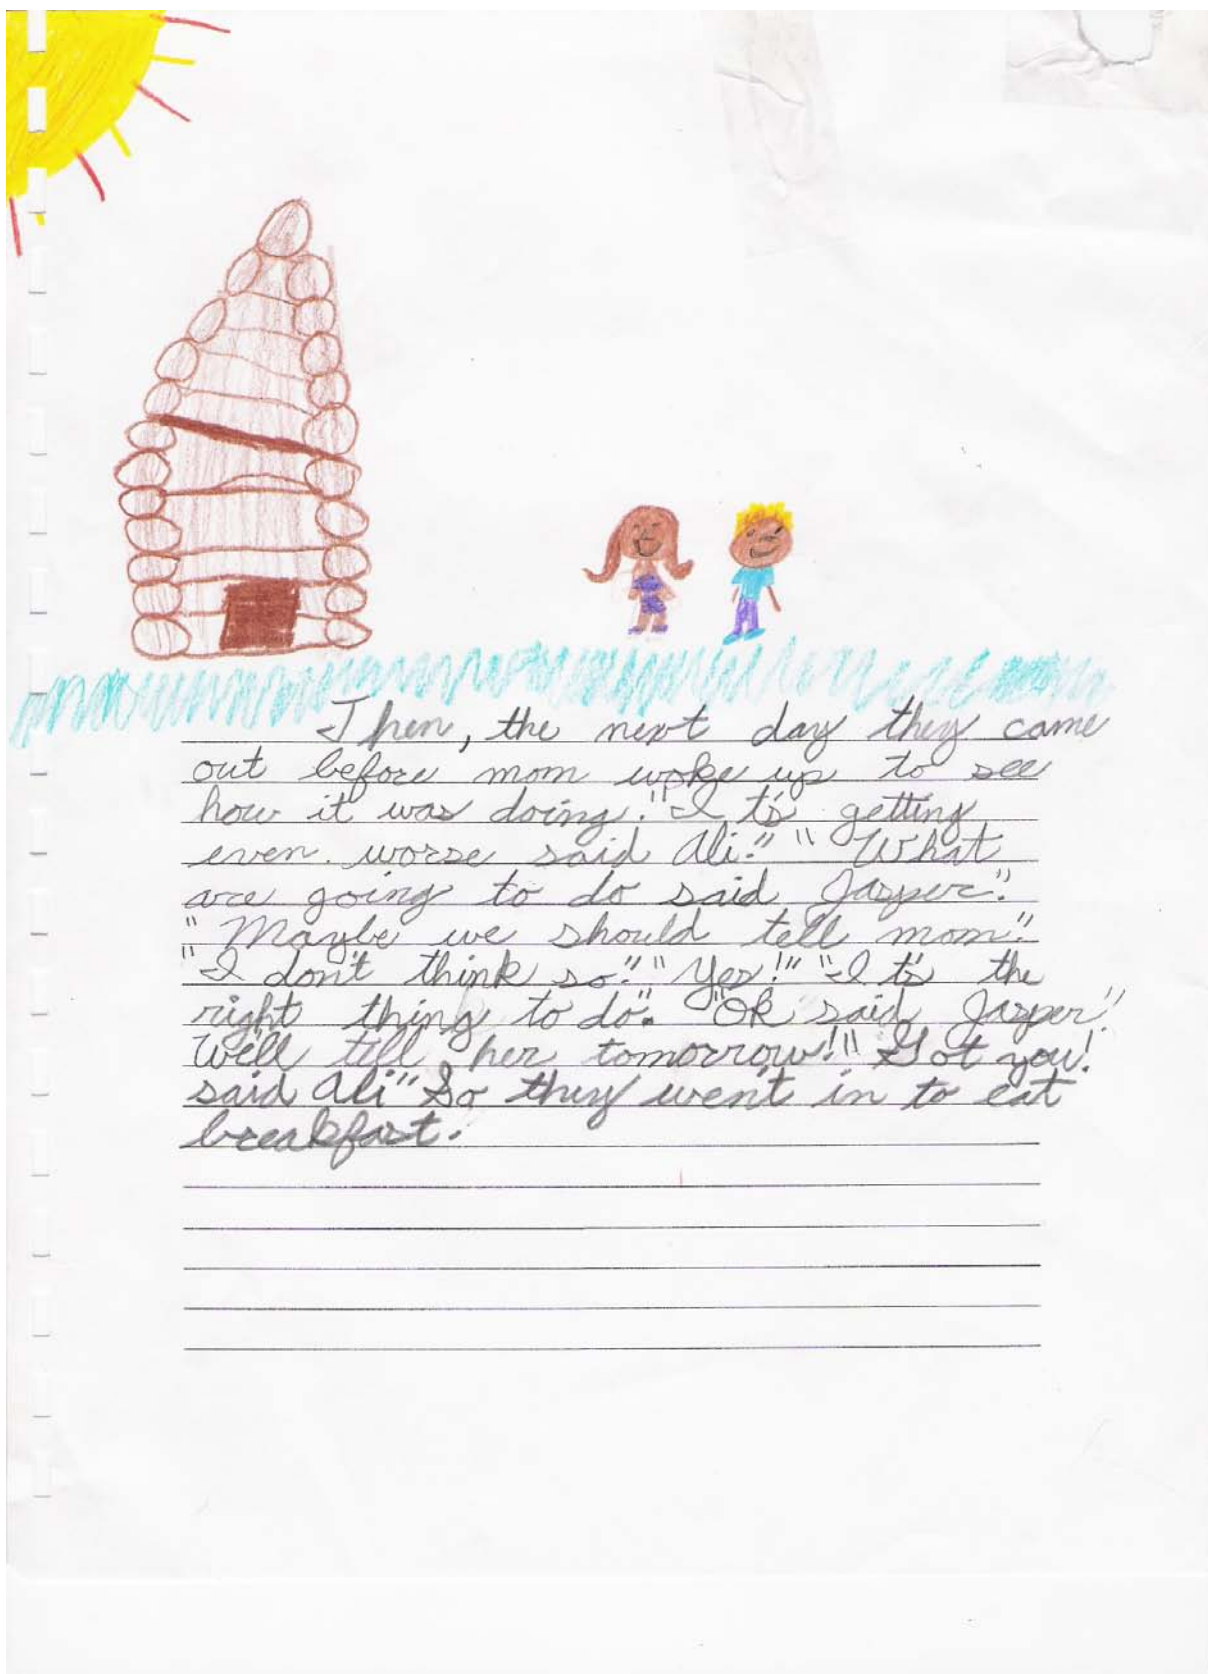 Then, the next day they came
out before mom woke up to see
how it was doing. "It's getting
even worse said Ali." "What
are going to do said Jasper".
"Maybe we should tell mom."
"I don't think so." "Yes!" "It's the
right thing to do". "Ok said Jasper"
We'll tell her tomorrow!" Got you!
said Ali" So they went in to eat
breakfast.